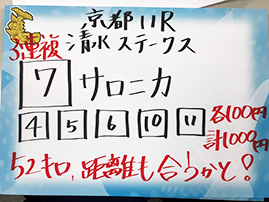 京都11R
3連複 清水ステークス
7 サロニカ
4 5 6 10 11 各100円
計1000円
52キロ、距離も合うかと!